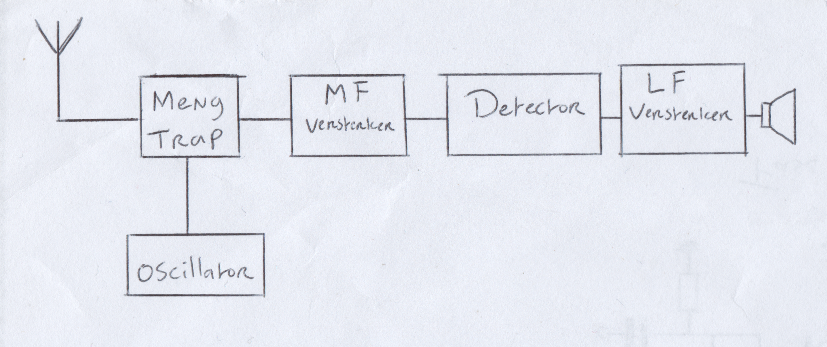 Meng
Trap
MF
Versterker
Detector
LF
Versterker
Oscillator